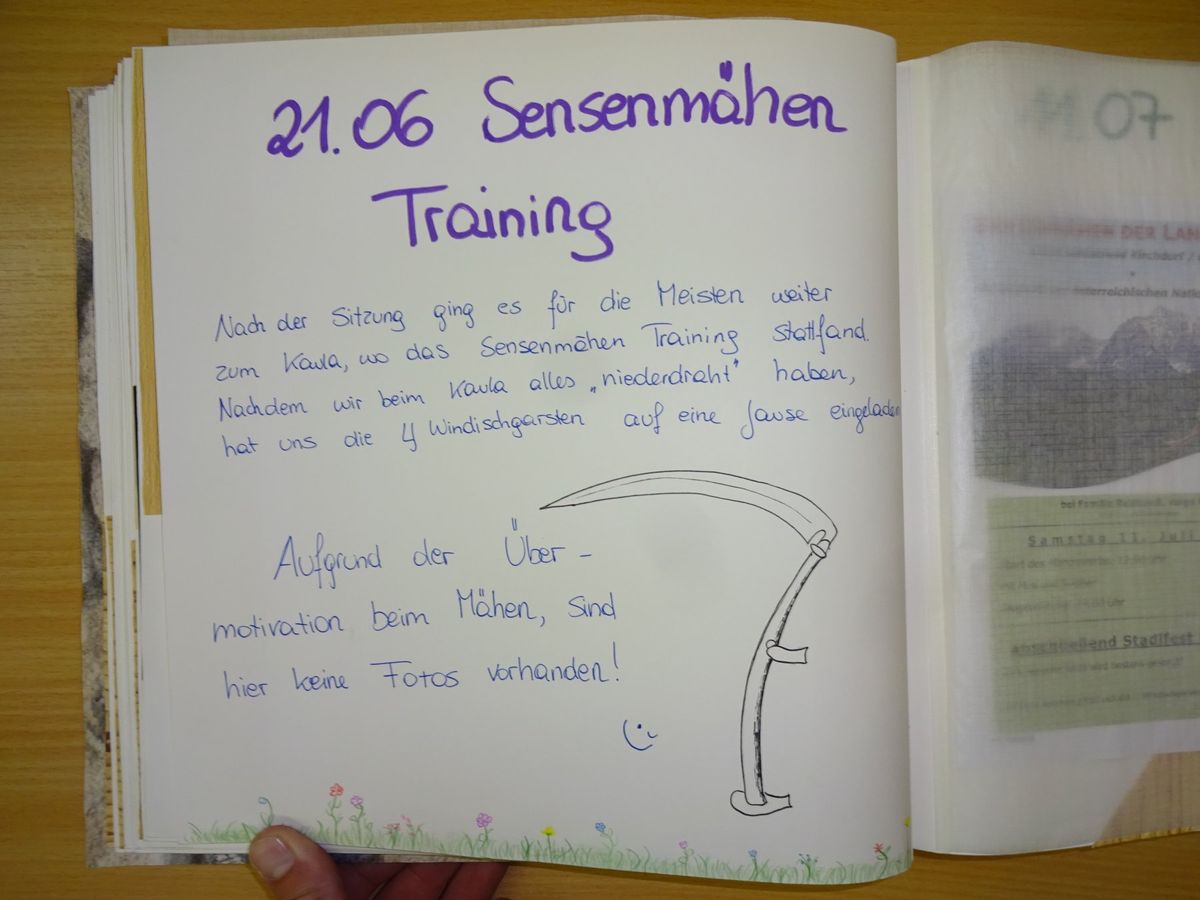 21.06 Sensenmähen
Training
Nach der Sitzung ging es für die Meisten weiter
zum Kaula, wo das Sensenmähen Training stattfand.
Nachdem wir beim Kaula alles „niederdraht" haben,
hat uns die 4 Windischgarsten auf eine Jause eingeladen
Aufgrund der Über-
motivation beim Mähen, sind
hier keine Fotos vorhanden!
07
DER LAN
Kirchdorf /
österreichischen Natio
bei Familie
Samstag 11. Juli
abschließend Stadlfest